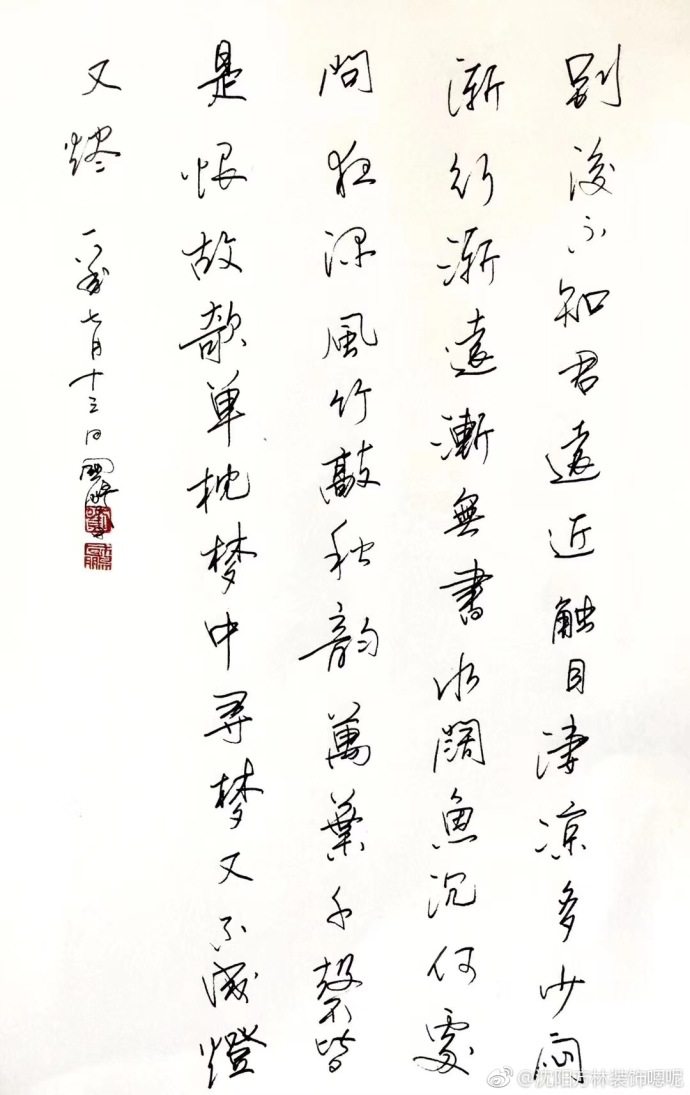 別後不知君遠近触目淒凉多少闷
漸行漸遠漸無書水闊魚沉何處
問深風竹敲秋韵萬葉千聲皆
是恨故欹单枕梦中寻梦又不成燈
又烬 一八年七月十三日
@沈阳方林装饰嗯呢